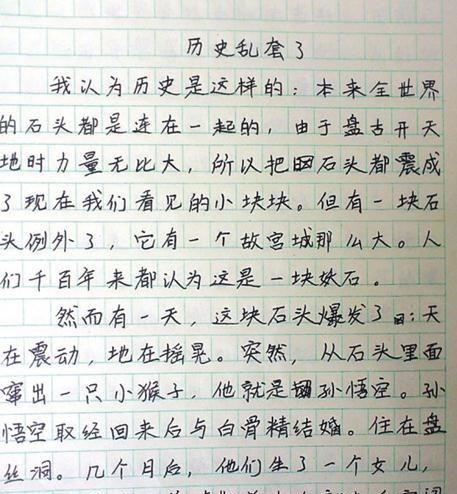 历史乱套了
我认为历史是这样的：本来全世界
的石头都是连在一起的，由于盘古开天
地时力量无比大，所以把石头都震成
了现在我们看见的小块块。但有一块石
头例外了，它有一个故宫城那么大。人
们千百年来都认为这是一块妖石。
然而有一天，这块石头爆发了：天
在震动，地在摇晃。突然，从石头里面
窜出一只小猴子，他就是孙悟空。孙
悟空取经回来后与白骨精结婚。住在盘
丝洞。几个月后，他们生了一个女儿，